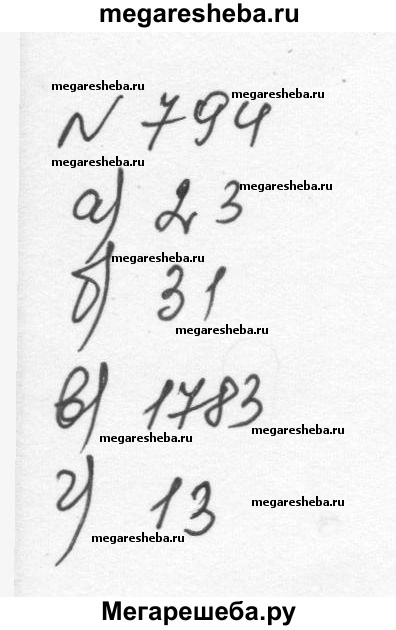 megaresheba.ru
megaresheba.ru
N 794
megaresheba.ru
megaresheba.ru
а) 23
megaresheba.ru
megaresheba.ru
б) 31
megaresheba.ru
в) 1783
megaresheba.ru
megaresheba.ru
г) 13
megaresheba.ru
megaresheba.ru
Мегарешеба.ру